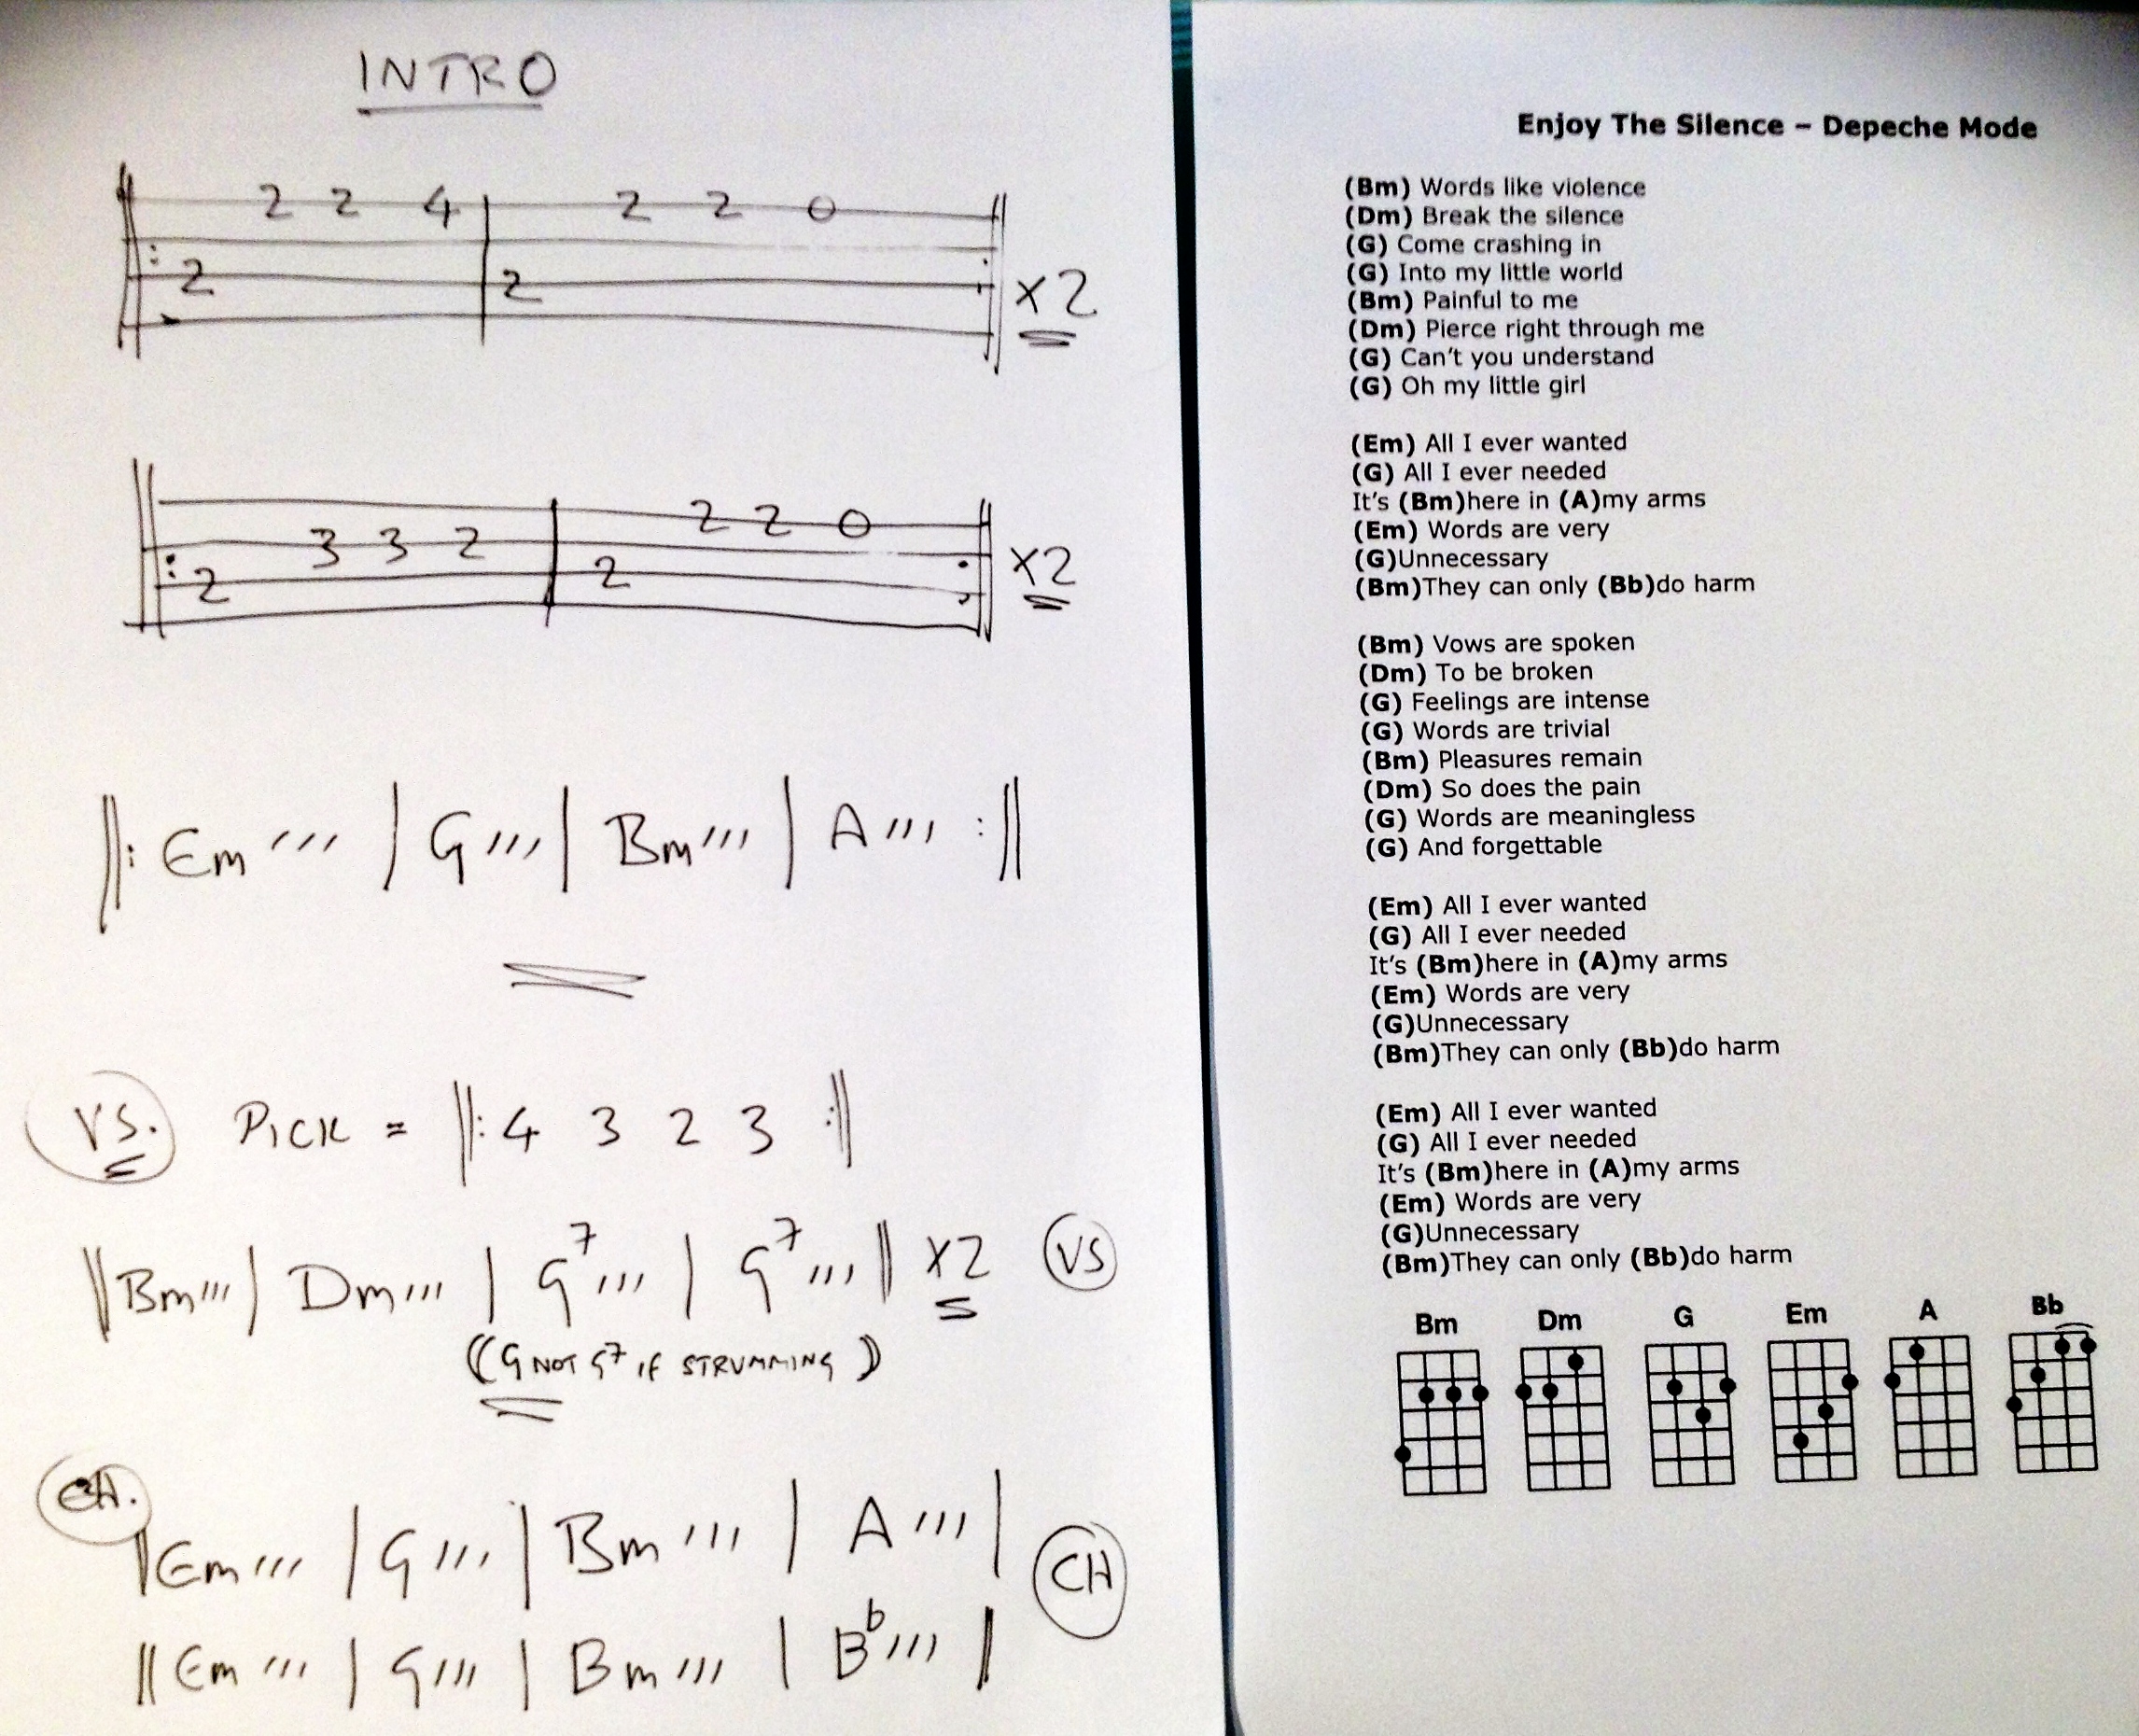 INTRO
2 2 4 | 2 2 0
2 | 2
x2
3 3 2 | 2 2 0
2 | 2
x2
||: Em ''' | G ''' | Bm ''' | A ''' :||
VS. PICK = ||: 4 3 2 3 :||
|| Bm ''' | Dm ''' | G7 ''' | G7 ''' || x2 VS
((G NOT G7 IF STRUMMING))
CH.
|| Em ''' | G ''' | Bm ''' | A ''' |
CH
|| Em ''' | G ''' | Bm ''' | Bb ''' ||
Enjoy The Silence – Depeche Mode
(Bm) Words like violence
(Dm) Break the silence
(G) Come crashing in
(G) Into my little world
(Bm) Painful to me
(Dm) Pierce right through me
(G) Can't you understand
(G) Oh my little girl
(Em) All I ever wanted
(G) All I ever needed
It's (Bm)here in (A)my arms
(Em) Words are very
(G)Unnecessary
(Bm)They can only (Bb)do harm
(Bm) Vows are spoken
(Dm) To be broken
(G) Feelings are intense
(G) Words are trivial
(Bm) Pleasures remain
(Dm) So does the pain
(G) Words are meaningless
(G) And forgettable
(Em) All I ever wanted
(G) All I ever needed
It's (Bm)here in (A)my arms
(Em) Words are very
(G)Unnecessary
(Bm)They can only (Bb)do harm
(Em) All I ever wanted
(G) All I ever needed
It's (Bm)here in (A)my arms
(Em) Words are very
(G)Unnecessary
(Bm)They can only (Bb)do harm
Bm Dm G Em A Bb